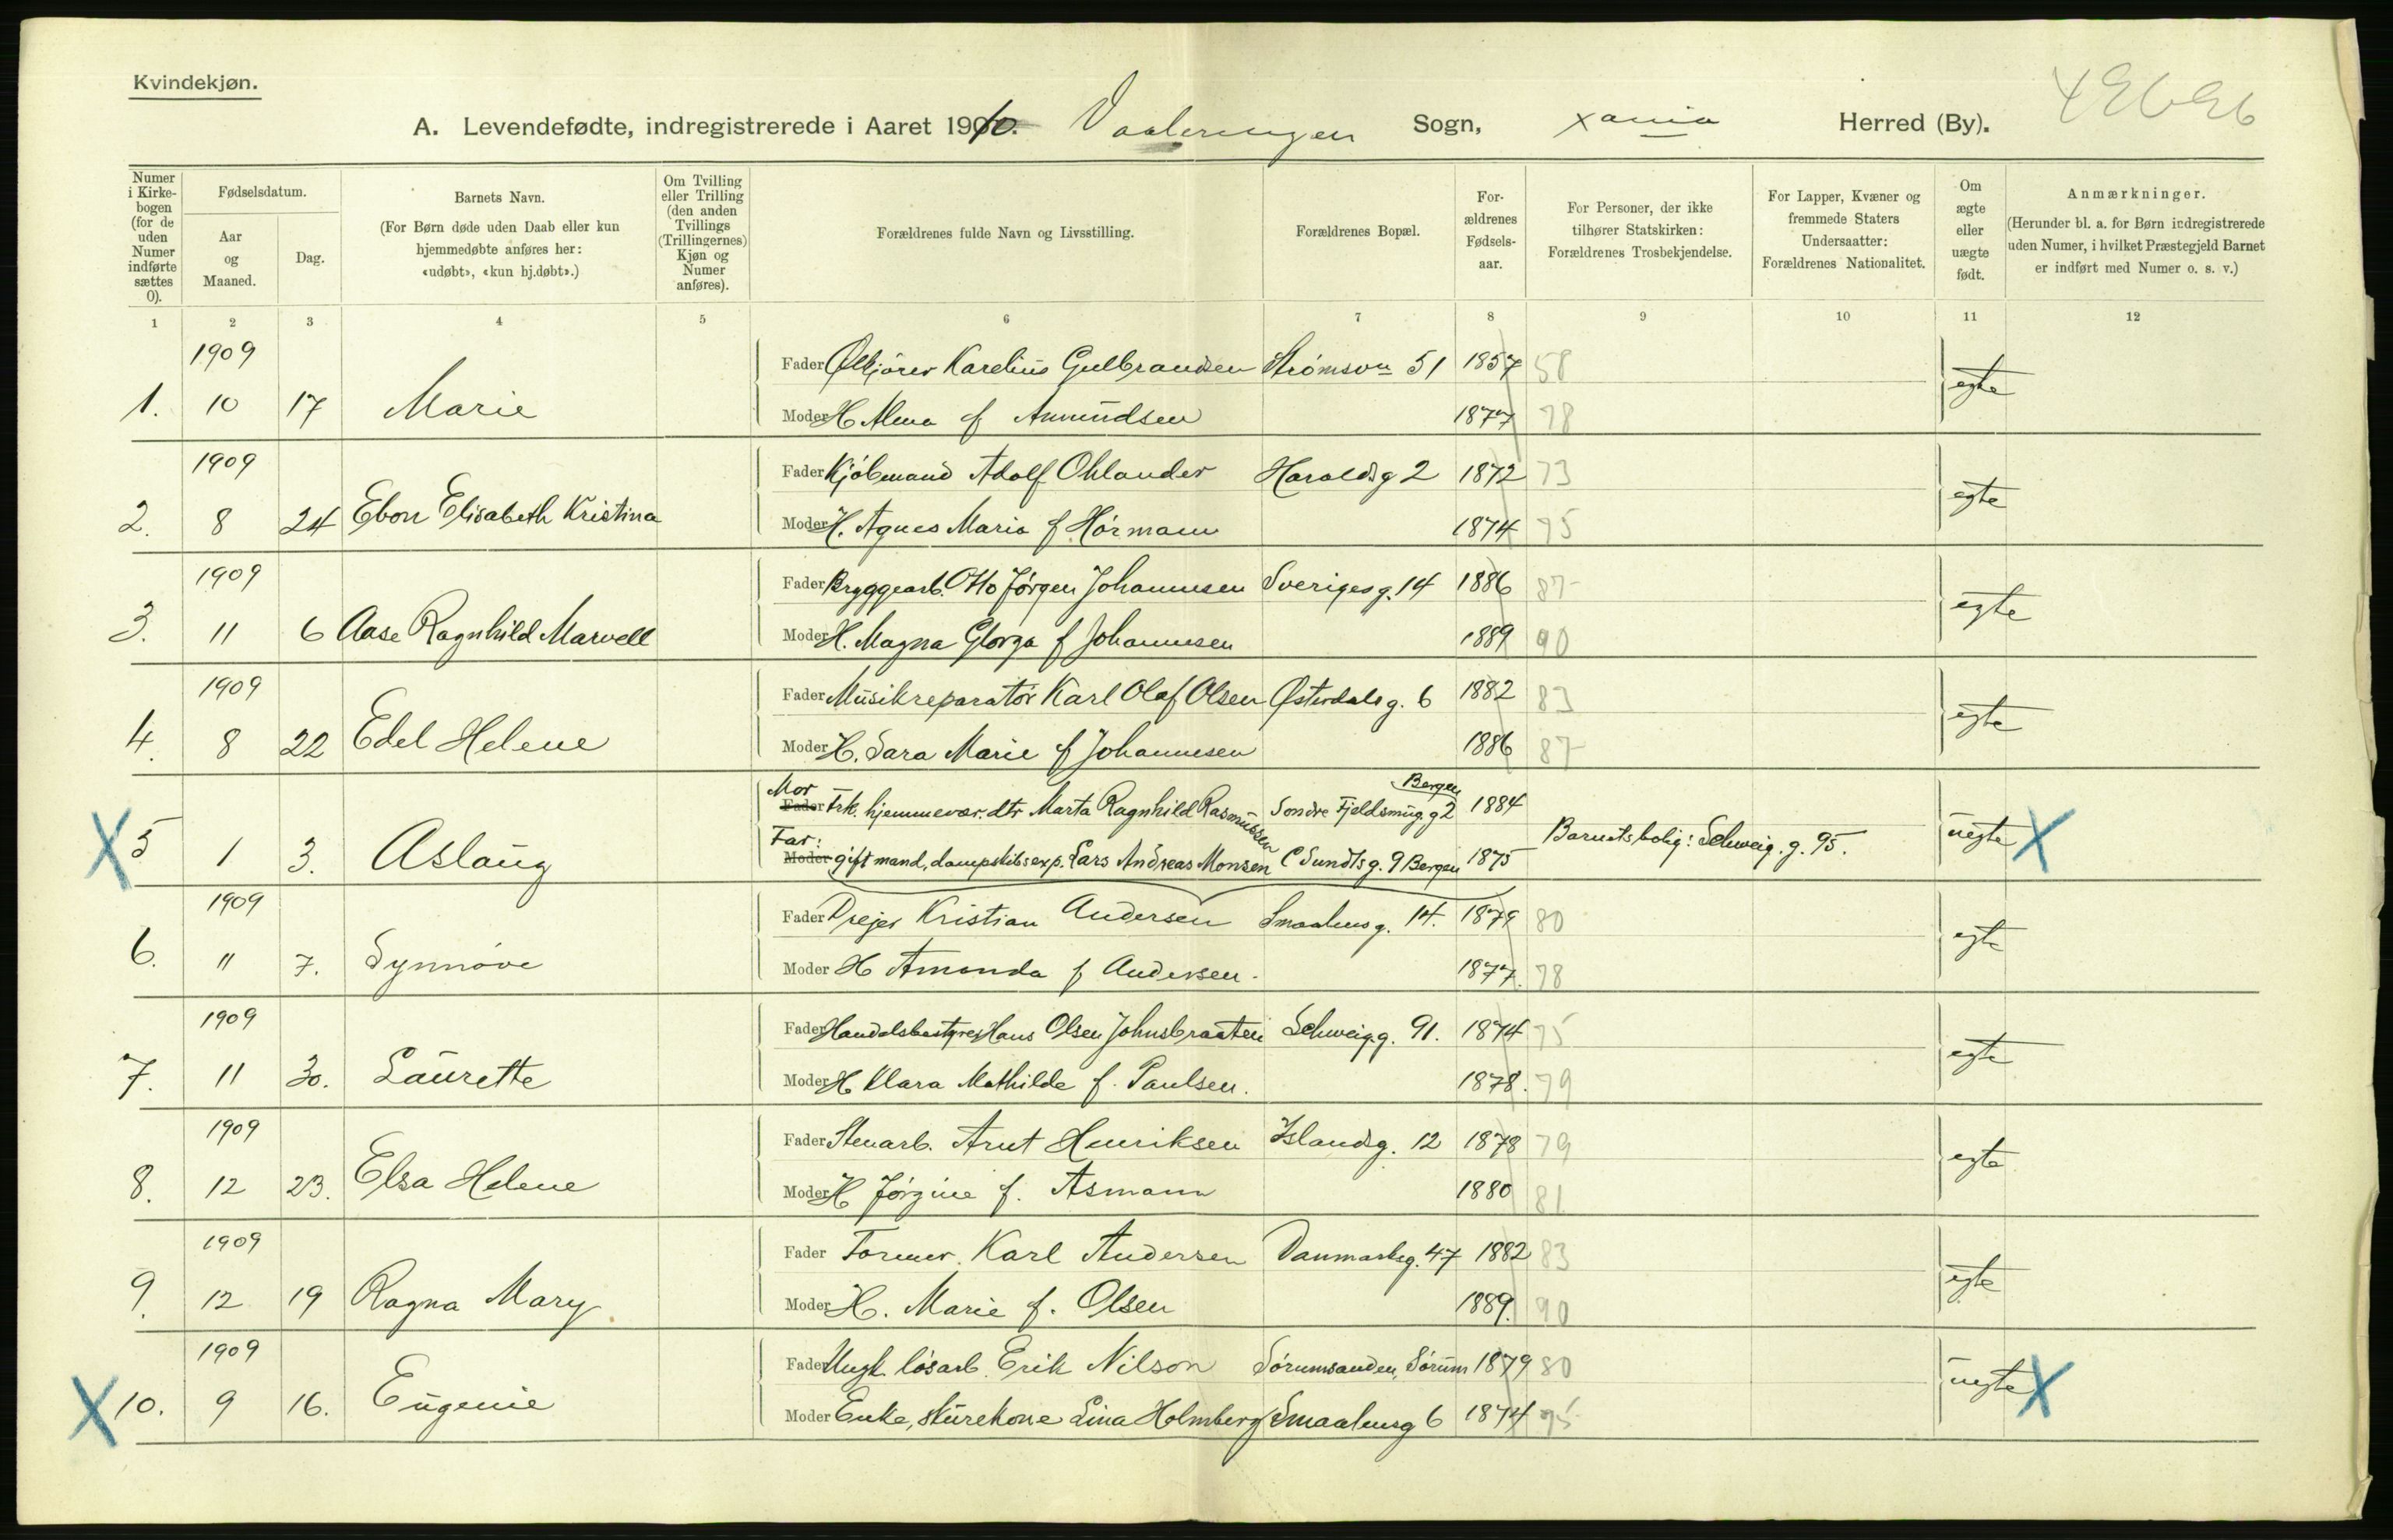 Kvindekjøn.
A. Levendefødte, indregistrerede i Aaret 1910. Vaalerengen Sogn, Xania Herred (By).
Numer i Kirkebogen (for de uden Numer indførte sættes 0).
Fødselsdatum.
Aar og Maaned.
Dag.
Barnets Navn.
(For Børn døde uden Daab eller kun hjemmedøbte anføres her: «udøbt», «kun hj.døbt».)
Om Tvilling eller Trilling (den anden Tvillings (Trillingernes) Kjøn og Numer anføres).
Forældrenes fulde Navn og Livsstilling.
Forældrenes Bopæl.
Forældrenes Fødselsaar.
For Personer, der ikke tilhører Statskirken: Forældrenes Trosbekjendelse.
For Lapper, Kvæner og fremmede Staters Undersaatter: Forældrenes Nationalitet.
Om ægte eller uægte født.
Anmærkninger.
(Herunder bl. a. for Børn indregistrerede uden Numer, i hvilket Præstegjeld Barnet er indført med Numer o. s. v.)
1 2 3 4 5 6 7 8 9 10 11 12
1909 Fader Ølkjører Karelius Gulbrandsen Strømsvn 51 1857 58 egte
1. 10 17 Marie Moder H Alma f Amundsen 1877 78
1909 Fader Kjöbmand Adolf Ohlander Haraldsg 2 1872 73 egte
2. 8 24 Ebon Elisabeth Kristina Moder H. Agnes Maria f. Hörmann 1874 75
1909 Fader Bryggearb. Otto Jørgen Johannesen Sverigesg. 14 1886 87 egte
3. 11 6 Aase Ragnhild Marvell Moder H. Magna Glorga f Johannesen 1889 90
1909 Fader Musikreparatör Karl Olaf Olsen Østerdalsg. 6 1882 83 egte
4. 8 22 Edel Helene Moder H. Sara Marie f Johannesen 1886 87
Mor Fader Frk. hjemmevær. dtr Marta Ragnhild Rasmussen Söndre Fjeldsmug. g 2 Bergen 1884
5 1 3. Aslaug Far: Moder gift mand, dampskibsexp. Lars Andreas Monsen C Sundtsg. 9 Bergen 1875 Barnets bolig: Schweig. g. 95. uegte
1909 Fader Drejer Kristian Andersen Smaalensg. 14. 1879 80 egte
6. 11 7. Synnöve Moder H Amanda f Andersen. 1877. 78
1909 Fader Handelsbestyrer Hans Olsen Johnsbraaten Schweigg. 91. 1874 75 egte
7. 11 30. Laurette Moder H Klara Mathilde f. Paulsen. 1878. 79
1909 Fader Stenarb. Arnt Henriksen Islandsg. 12 1878 79 egte
8. 12 23. Elsa Helene Moder H Jörgine f. Asmann 1880 81
1909 Fader Former. Karl Andersen Danmarksg. 47 1882 83 egte
9. 12 19 Ragna Mary Moder H. Marie f. Olsen 1889. 90
1909 Fader Ungk. lösarb. Erik Nilson Sörumsanden, Sörum 1879 80 uegte
10. 9 16. Eugenie Moder Enke, skurekone Lina Holmberg Smaalensg 6 1874 75